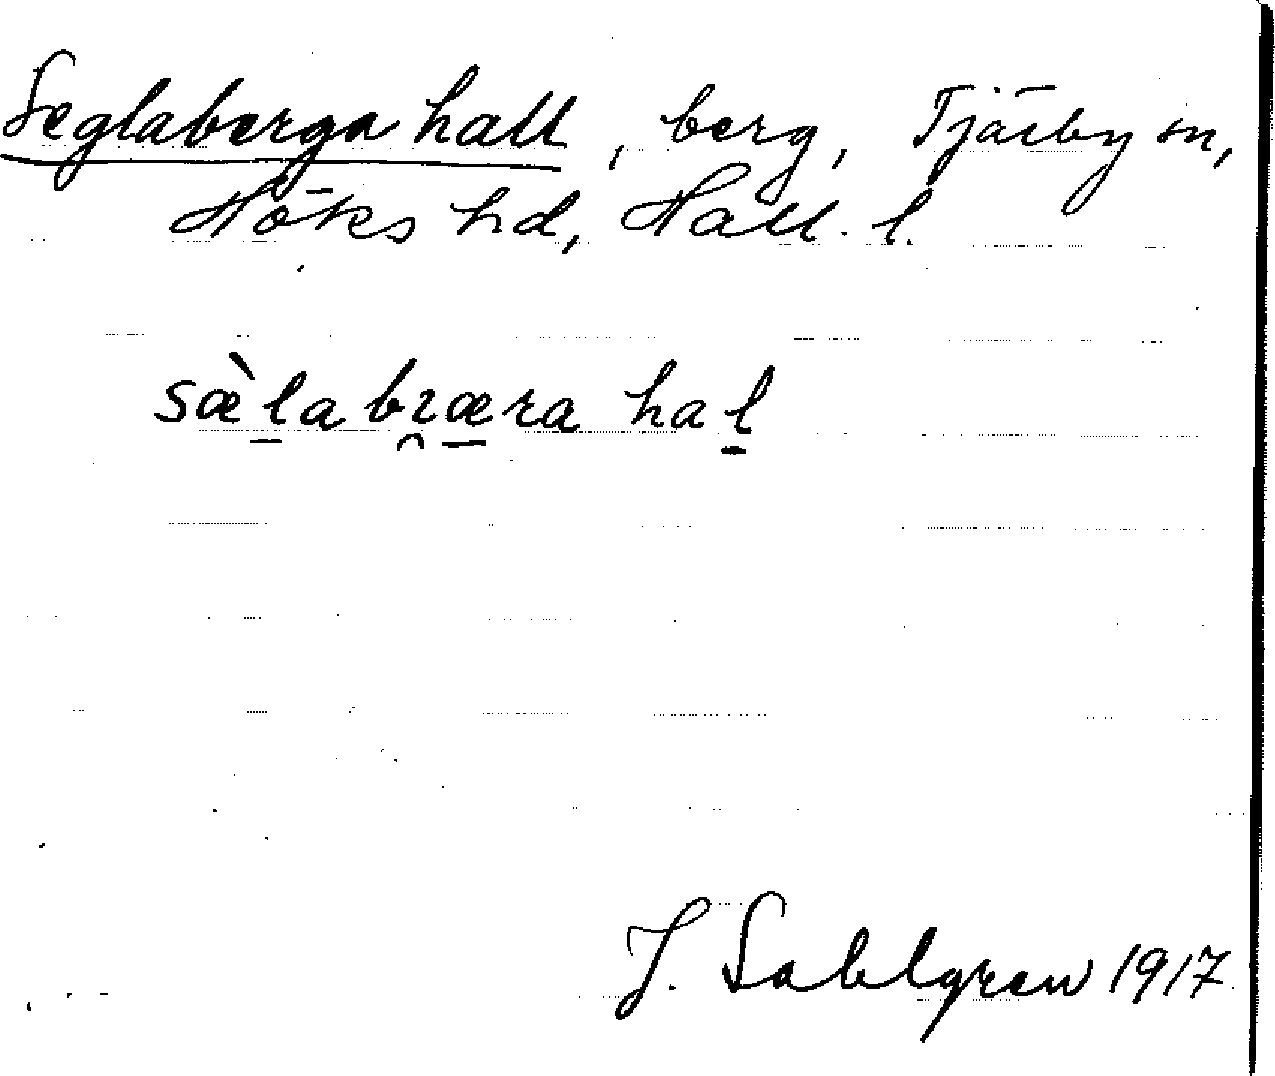 Seglaberga hall, berg, Tjärby sn,
Höks hd, Hall. l.
sæ̀l̠a bɿ̯æ̠ra hal̠
J. Sahlgren 1917